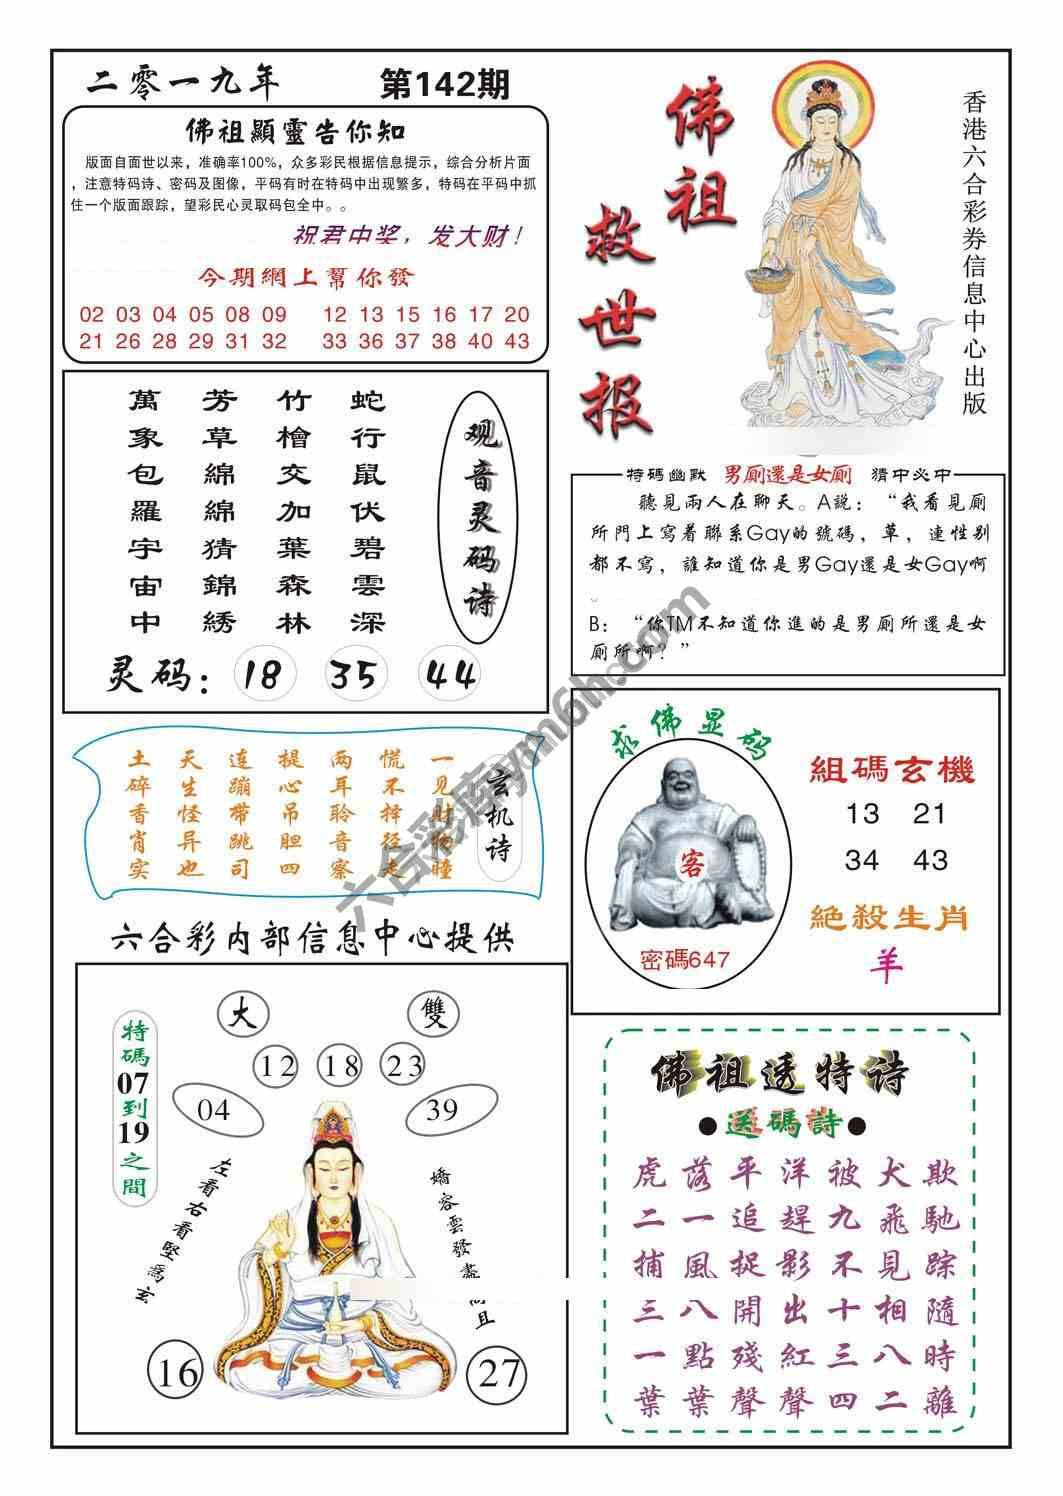 二零一九年
第142期
佛祖顯靈告你知
版面自面世以来，准确率100%，众多彩民根据信息提示，综合分析片面
，注意特码诗、密码及图像，平码有时在特码中出现繁多，特码在平码中抓
住一个版面跟踪，望彩民心灵取码包全中。。
祝君中奖，发大财！
今期網上幫你發
02 03 04 05 08 09 12 13 15 16 17 20
21 26 28 29 31 32 33 36 37 38 40 43
佛祖救世报
香港六合彩券信息中心出版
观音灵码诗
蛇行鼠伏碧雲深
竹檜交加葉森林
芳草綿綿猜錦绣
萬象包羅宇宙中
灵码：18 35 44
特碼幽默 男厠還是女厠 猜中必中
聽見兩人在聊天。A説：“我看見厠
所門上寫着聯系Gay的號碼，草，連性别
都不寫，誰知道你是男Gay還是女Gay啊
B：“你TM不知道你進的是男厠所還是女
厠所啊？”
玄机诗
一见财物瞳
慌不择径走
两耳聆音察
提心吊胆四
连蹦带跳司
天生怪异也
土碎香肖实
求佛显码
客
密碼647
組碼玄機
13 21
34 43
絶殺生肖
羊
六合彩内部信息中心提供
大
雙
12 18 23
04
39
特碼07到19之間
左看右看堅爲玄
嬌容雲發盡
且
16
27
佛祖透特诗
●送碼詩●
虎落平洋被犬欺
二一追趕九飛馳
捕風捉影不見踪
三八開出十相隨
一點殘紅三八時
葉葉聲聲四二離
六合彩库ym6h.com